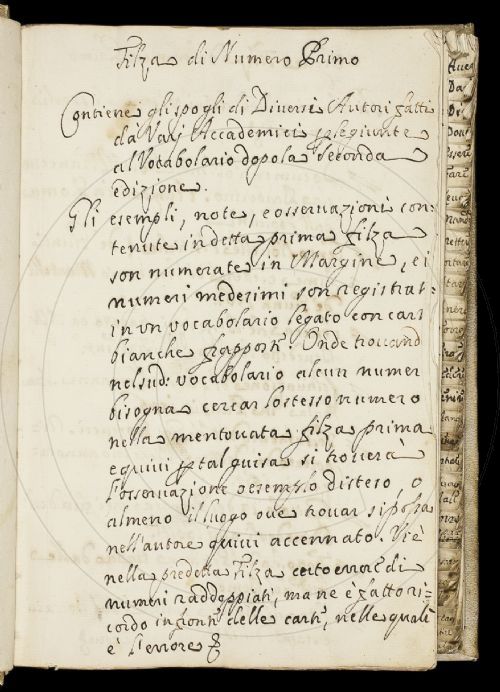 Filza di Numero Primo
Contiene gli spogli di Diversi Autori fatti
da Varj Accademici p le giunte
al Vocabolario dopo la seconda
edizione.
Gli esempli, note, e osservazioni con:
tenute in detta prima filza
son numerate in Margine, e i
numeri medesimi son registrat
in un vocabolario legato con car
bianche frappost. Onde trovand
nel sud: vocabolario alcun numer
bisogna cercar lo stesso numero
nella mentovata filza prima
e quivi p tal guisa si troverà
l'osservazione o esemplo disteso, o
almeno il luogo ove trovar si possa
nell'autore quivi accennato. Vi è
nella predetta Filza certo error di
numeri raddoppiati, ma ne è fatto ri:
cordo in front delle cart, nelle quali
è l'errore